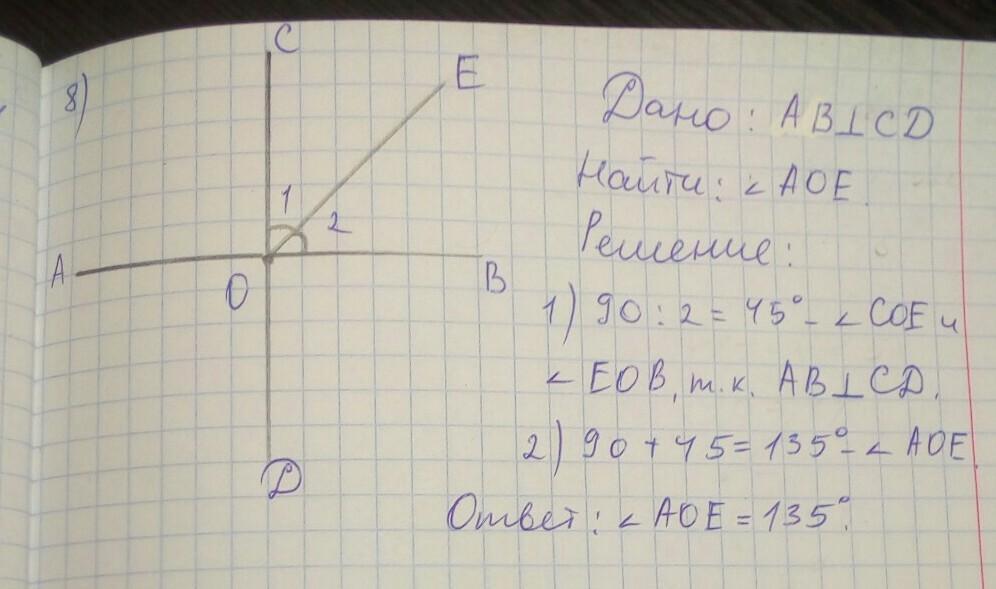 8)
C
E
1
2
A
O
B
D
Дано: AB⊥CD
Найти: ∠AOE.
Решение:
1) 90 : 2 = 45° - ∠COE и
∠EOB, т.к. AB⊥CD.
2) 90 + 45 = 135° - ∠AOE
Ответ: ∠AOE = 135°.